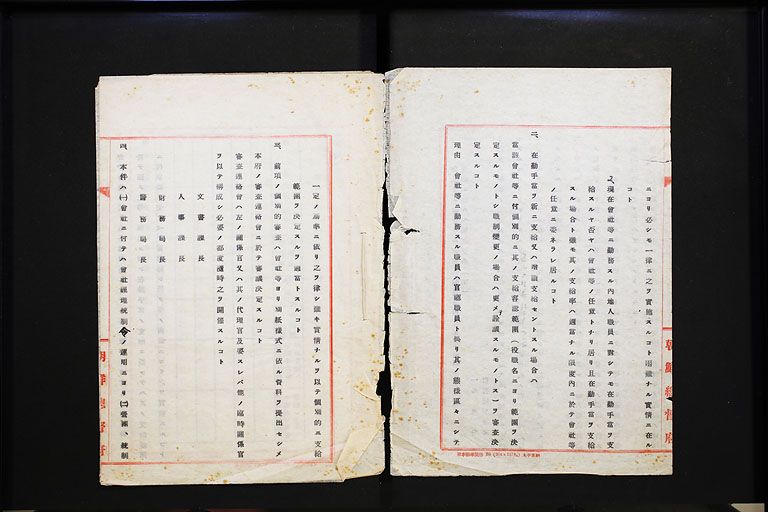 ニヨリ必シモ一律ニ之ヲ實施スルコト困難ナル實情ニ在ル
コト
現在會社等ニ勤務スル内地人職員ニ對シテモ在勤手當ヲ支
給スルヤ否ヤハ會社等ノ任意トナリ居リ且在勤手當ヲ支給
スル場合ト雖モ其ノ支給率ハ適當ナル限度内ニ於テ會社等
ノ任意ニ委ネラレ居ルコト
二、在勤手當ヲ新ニ支給又ハ増額支給セントスル場合ハ
當該會社等ニ付個別的ニ其ノ支給容認範圍(役職名ニヨリ範圍ヲ決
定スルモノトシ職制變更ノ場合ハ更メテ詮議スルモノトス)ヲ審査決
定スルコト
理由 會社等ニ勤務スル職員ハ官廳職員ト異リ其ノ態樣區々ニシテ
朝鮮總督府
一定ノ基準ニ依リ之ヲ律シ難キ實情ナルヲ以テ個別的ニ支給
範圍ヲ決定スルヲ適當トスルコト
三、前項ノ個別的審査ハ會社等ヨリ別紙樣式ニ依ル資料ヲ提出セシメ
本府ノ審査連絡會ニ於テ審議決定スルコト
審査連絡會ハ左ノ關係官又ハ其ノ代理官及要スレバ他ノ臨時關係官
ヲ以テ構成シ必要ノ都度隨時之ヲ開催スルコト
文書課長
人事課長
財務局長
務局長
四、本件ハ(一)會社ニ付テハ會社經理統制令ノ運用ニヨリ(二)營團、統制
朝鮮總督府